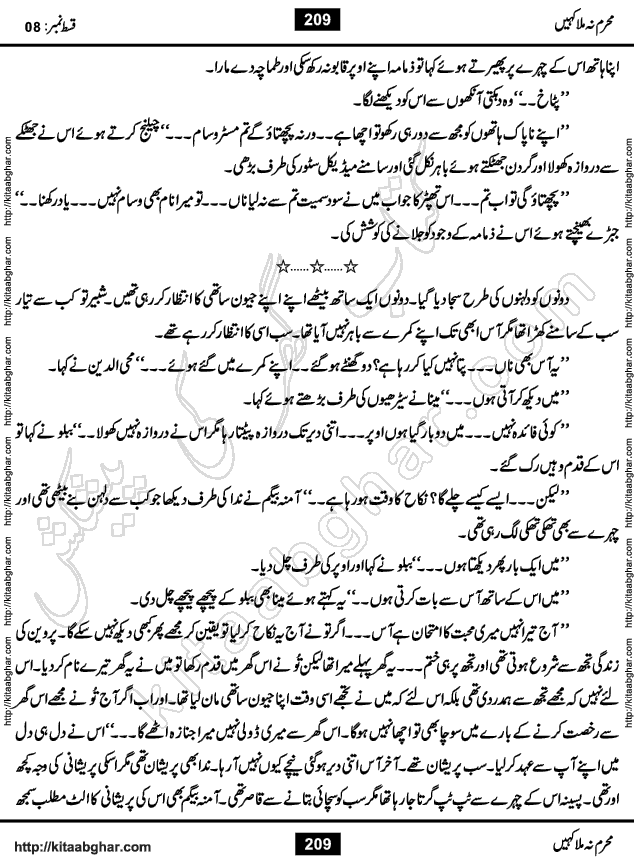 محرم نہ ملا کہیں
209
قسط نمبر: 08
اپنا ہاتھ اس کے چہرے پر پھیرتے ہوئے کہا تو ذمامہ اپنے اوپر قابو نہ رکھ سکی اور طمانچہ دے مارا۔
’’پٹاخ۔۔‘‘ وہ دہکتی آنکھوں سے اس کو دیکھنے لگا۔
’’اپنے ناپاک ہاتھوں کو مجھ سے دور ہی رکھو تو اچھا ہے۔۔ ورنہ پچھتاؤ گے تم مسٹر وسام۔۔۔‘‘ چیلنج کرتے ہوئے اس نے جھٹکے
سے دروازہ کھولا اور گردن جھٹکتے ہوئے باہر نکل گئی اور سامنے میڈیکل سٹور کی طرف بڑھی۔
’’پچھتاؤ گی تو اب تم۔۔۔ اس تھپڑ کا جواب میں نے سود سمیت تم سے نہ لیا ناں۔۔۔ تو میرا نام بھی وسام نہیں۔۔۔ یاد رکھنا۔۔‘‘
جبڑے بھینچتے ہوئے اس نے ذمامہ کے وجود کو جلانے کی کوشش کی۔
☆......☆......☆
دونوں کو دلہنوں کی طرح سجا دیا گیا۔ دونوں ایک ساتھ بیٹھے اپنے اپنے جیون ساتھی کا انتظار کر رہی تھیں۔ شبیر تو کب سے تیار
سب کے سامنے کھڑا تھا مگر آس ابھی تک اپنے کمرے سے باہر نہیں آیا تھا۔ سب اسی کا انتظار کر رہے تھے۔
’’یہ آس بھی ناں۔۔۔ پتا نہیں کیا کر رہا ہے؟ دو گھنٹے ہو گئے۔۔ اپنے کمرے میں گئے ہوئے۔۔۔‘‘ محی الدین نے کہا۔
’’میں دیکھ کر آتی ہوں۔۔۔‘‘ مینا نے سیڑھیوں کی طرف بڑھتے ہوئے کہا۔
’’کوئی فائدہ نہیں۔۔۔ میں دو بار گیا ہوں اوپر۔۔۔ اتنی دیر تک دروازہ پیٹتا رہا مگر اس نے دروازہ نہیں کھولا۔۔‘‘ ببلو نے کہا تو
اس کے قدم وہیں رک گئے۔
’’لیکن۔۔۔ ایسے کیسے چلے گا؟ نکاح کا وقت ہو رہا ہے۔۔‘‘ آمنہ بیگم نے ندا کی طرف دیکھا جو کب سے دلہن بنے بیٹھی تھی اور
چہرے سے بھی تھکی تھکی لگ رہی تھی۔
’’میں ایک بار پھر دیکھتا ہوں۔۔۔‘‘ ببلو نے کہا اور اوپر کی طرف چل دیا۔
’’میں اس کے ساتھ آس سے بات کرتی ہوں۔۔‘‘ یہ کہتے ہوئے مینا بھی ببلو کے پیچھے پیچھے چل دی۔
’’آج تیرا نہیں میری محبت کا امتحان ہے آس۔۔۔ اگر تو نے آج یہ نکاح کر لیا تو یقین کر مجھے پھر کبھی دیکھ نہیں سکے گا۔ پروین کی
زندگی تجھ سے شروع ہوتی تھی اور تجھ پر ہی ختم۔۔۔ یہ گھر پہلے میرا تھا لیکن تُو نے اس گھر میں قدم رکھا تو میں نے یہ گھر تیرے نام کر دیا۔ اس
لئے نہیں کہ مجھے تجھ سے ہمدردی تھی بلکہ اس لئے کہ میں نے تجھے اسی وقت اپنا جیون ساتھی مان لیا تھا۔ اور اب اگر آج تُو نے مجھے اس گھر
سے رخصت کرنے کے بارے میں سوچا بھی تو اچھا نہیں ہوگا۔ اس گھر سے میری ڈولی نہیں میرا جنازہ اٹھے گا۔۔۔‘‘ اس نے دل ہی دل
میں اپنے آپ سے عہد کر لیا۔ سب پریشان تھے۔ آخر آس اتنی دیر ہو گئی نیچے کیوں نہیں آ رہا۔ ندا بھی پریشان تھی مگر اسکی پریشانی کی وجہ کچھ
اور تھی۔ پسینہ اس کے چہرے سے ٹپ ٹپ گرتا جا رہا تھا مگر سب کو سچائی بتانے سے قاصر تھی۔ آمنہ بیگم بھی اس کی پریشانی کا الٹ مطلب سمجھ
http://kitaabghar.com http://kitaabghar.com http://kitaabghar.com http://kitaabghar.com http://kitaabghar.com http://kitaabghar.com
http://kitaabghar.com http://kitaabghar.com http://kitaabghar.com http://kitaabghar.com http://kitaabghar.com http://kitaabghar.com
کتاب گھر کی پیشکش
kitaabghar.com
محرم نہ ملا کہیں
209
http://kitaabghar.com